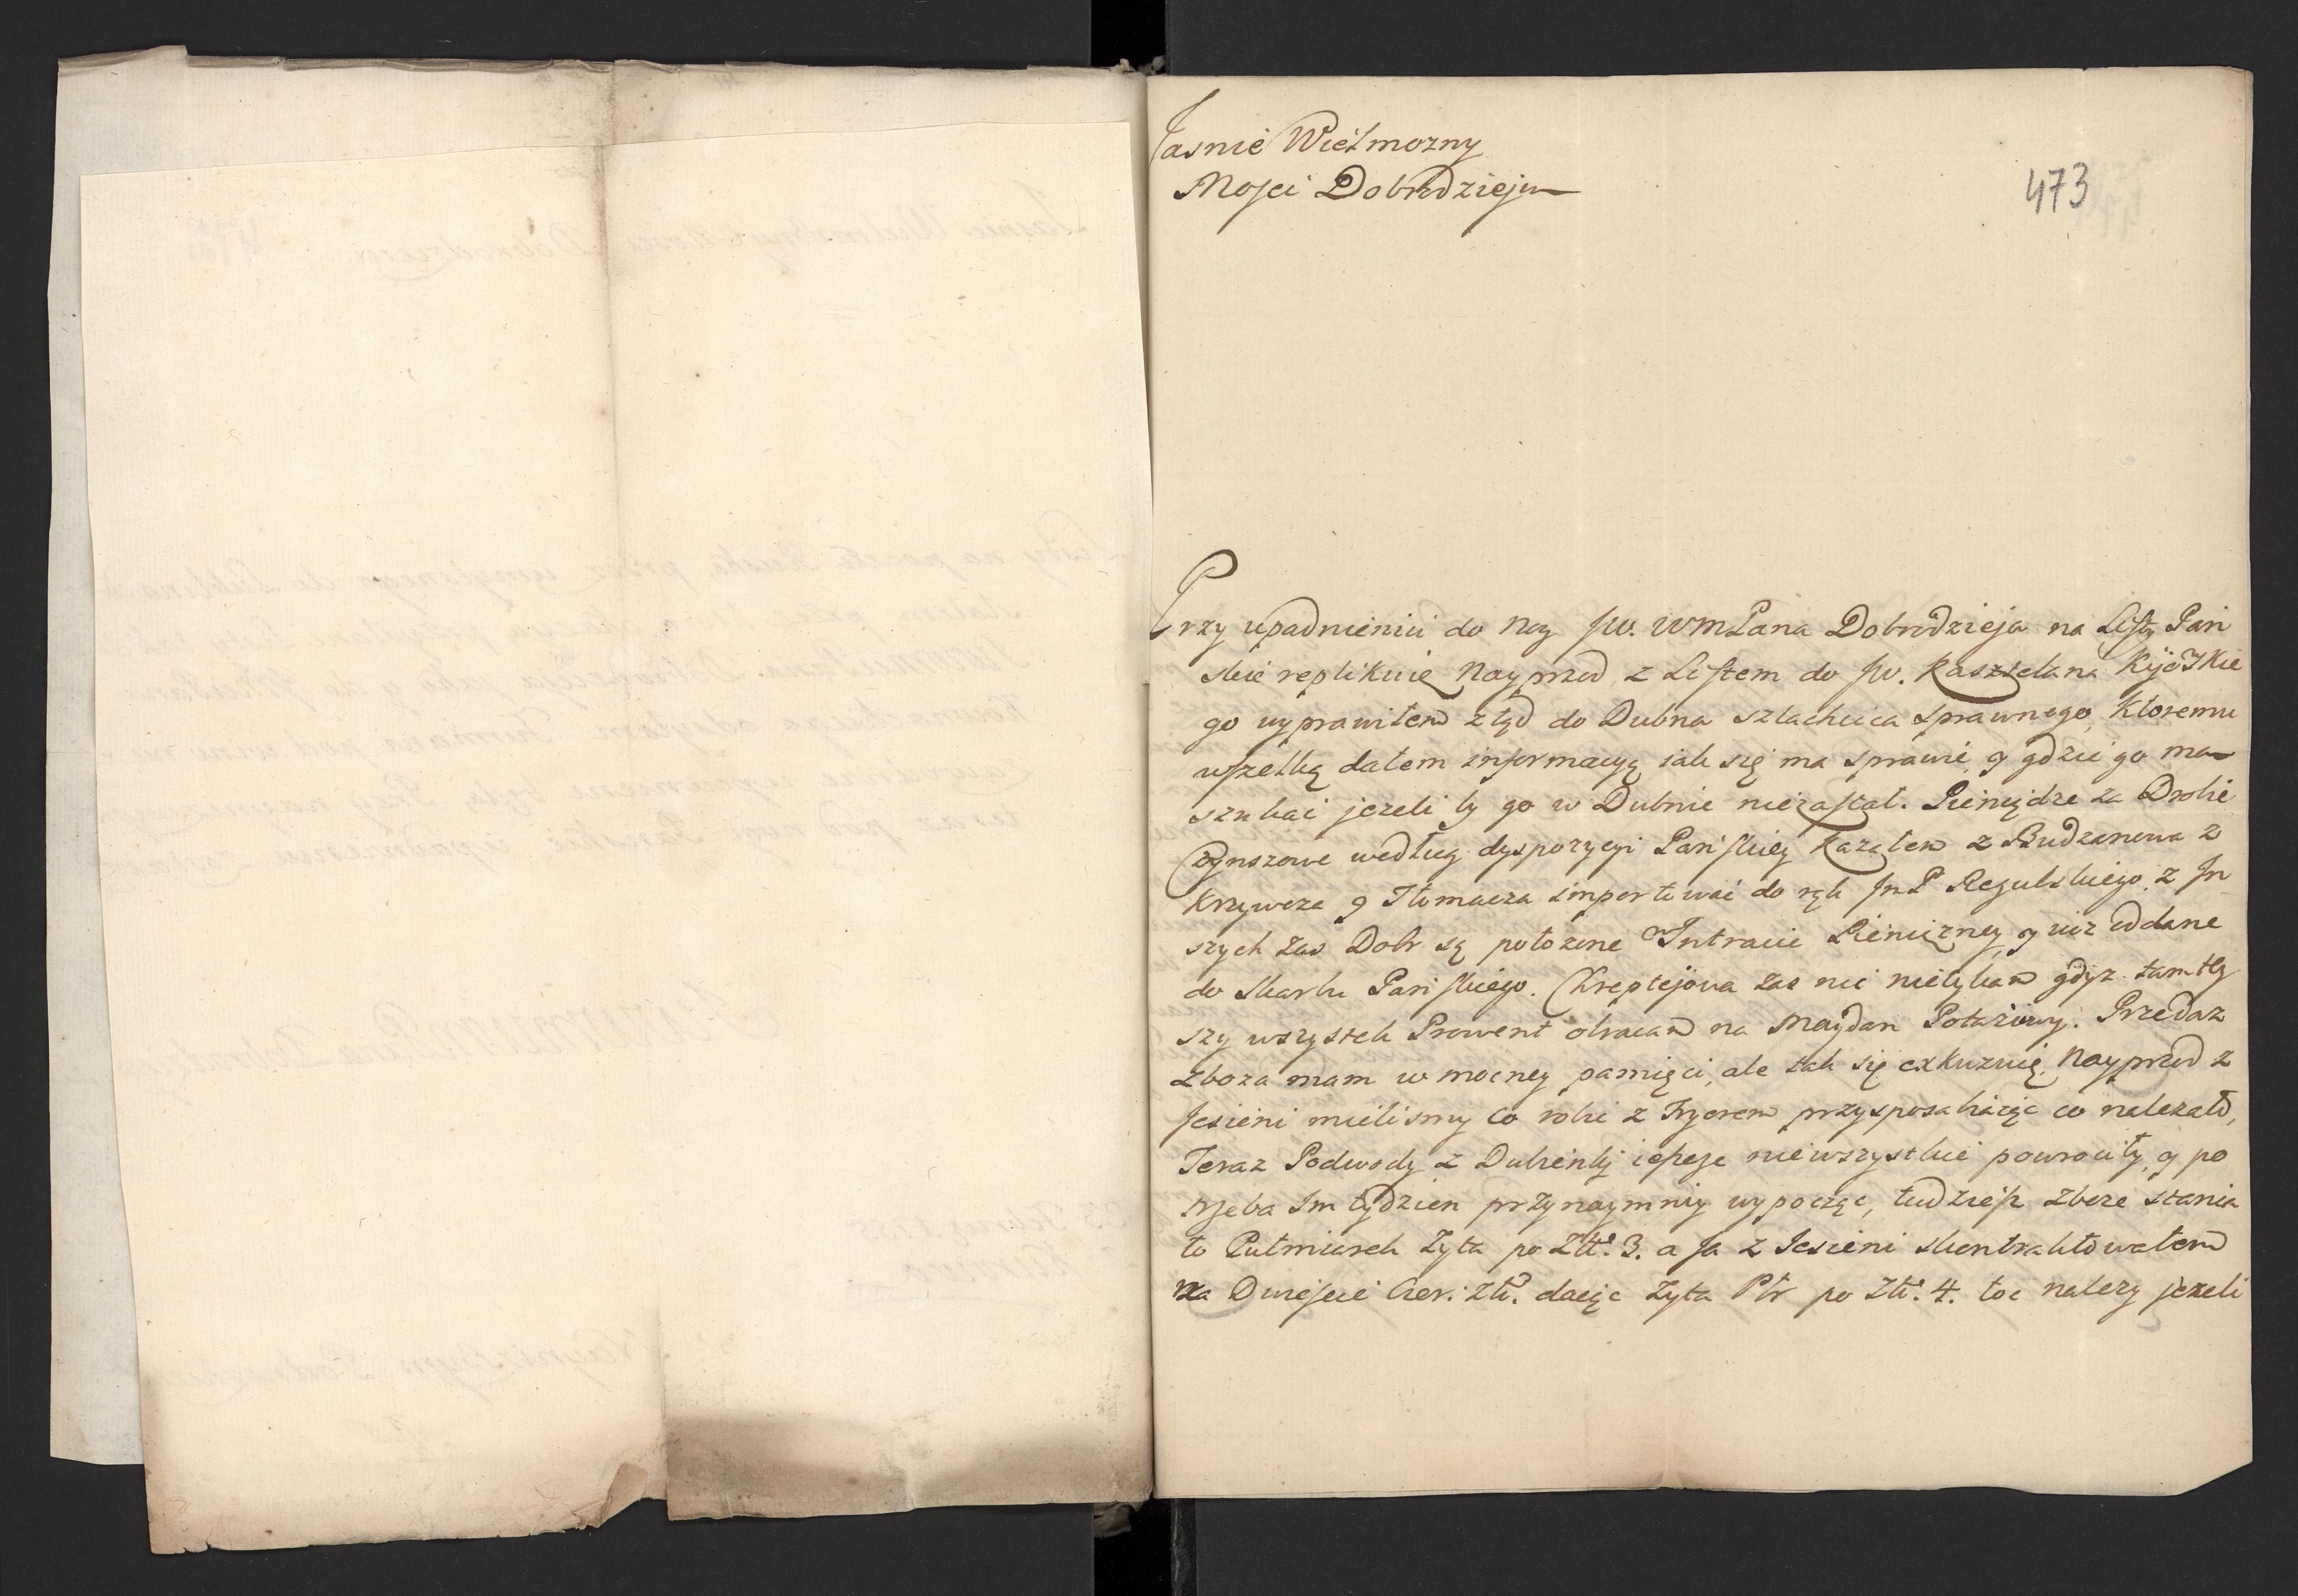 Jasnie Wielmozny
Mosci Dobrodzieju
473
Przy upadnieniu do nog Jw. WmPana Dobrodzieja na Listy Pan
skie replikuię Nayprzod z Listem do Jw. Kasztelana Kijowskie
go wyprawiłem ztąd do Dubna szlachcica sprawnego, ktoremu
wszelką dałem informacyą iak się ma sprawić y gdzie go ma
szukać jezeli by go w Dubnie niezastał. Pieniądze za
Czynszowe według dyspozycyi Panskiey kazałem z Budzanowa z
Krzywcza y Tłomacza importować do rąk JmP Regulskiego, z In
szych zas Dobr są położone w Intracie Pieniężney, y iuz oddane
do Skarbu Panskiego. Kreptejowa zas nic nietykam gdyz tamtey
szy wszystek Prowent obracam na Maydan Potazowy. Przedaz
zboza mam w mocney pamięci, ale tak się exkuzuię, Nayprzod z
Jesieni mielismy co robić z Fryorem przysposabiaiąc co nalezało,
Teraz Podwody z Dubienki ieszcze niewszystkie powrociły, y po
trzeba Im tydzien przynaymniey wypocząc, tudziesz zboze stania
ło Putmiarek Zyta po Złt. 3. a Ja z Jesieni skontraktowałem
na Dwiescie Czer: Złt. daiąc Zyta Płr po Złt. 4. toc nalezy jezeli